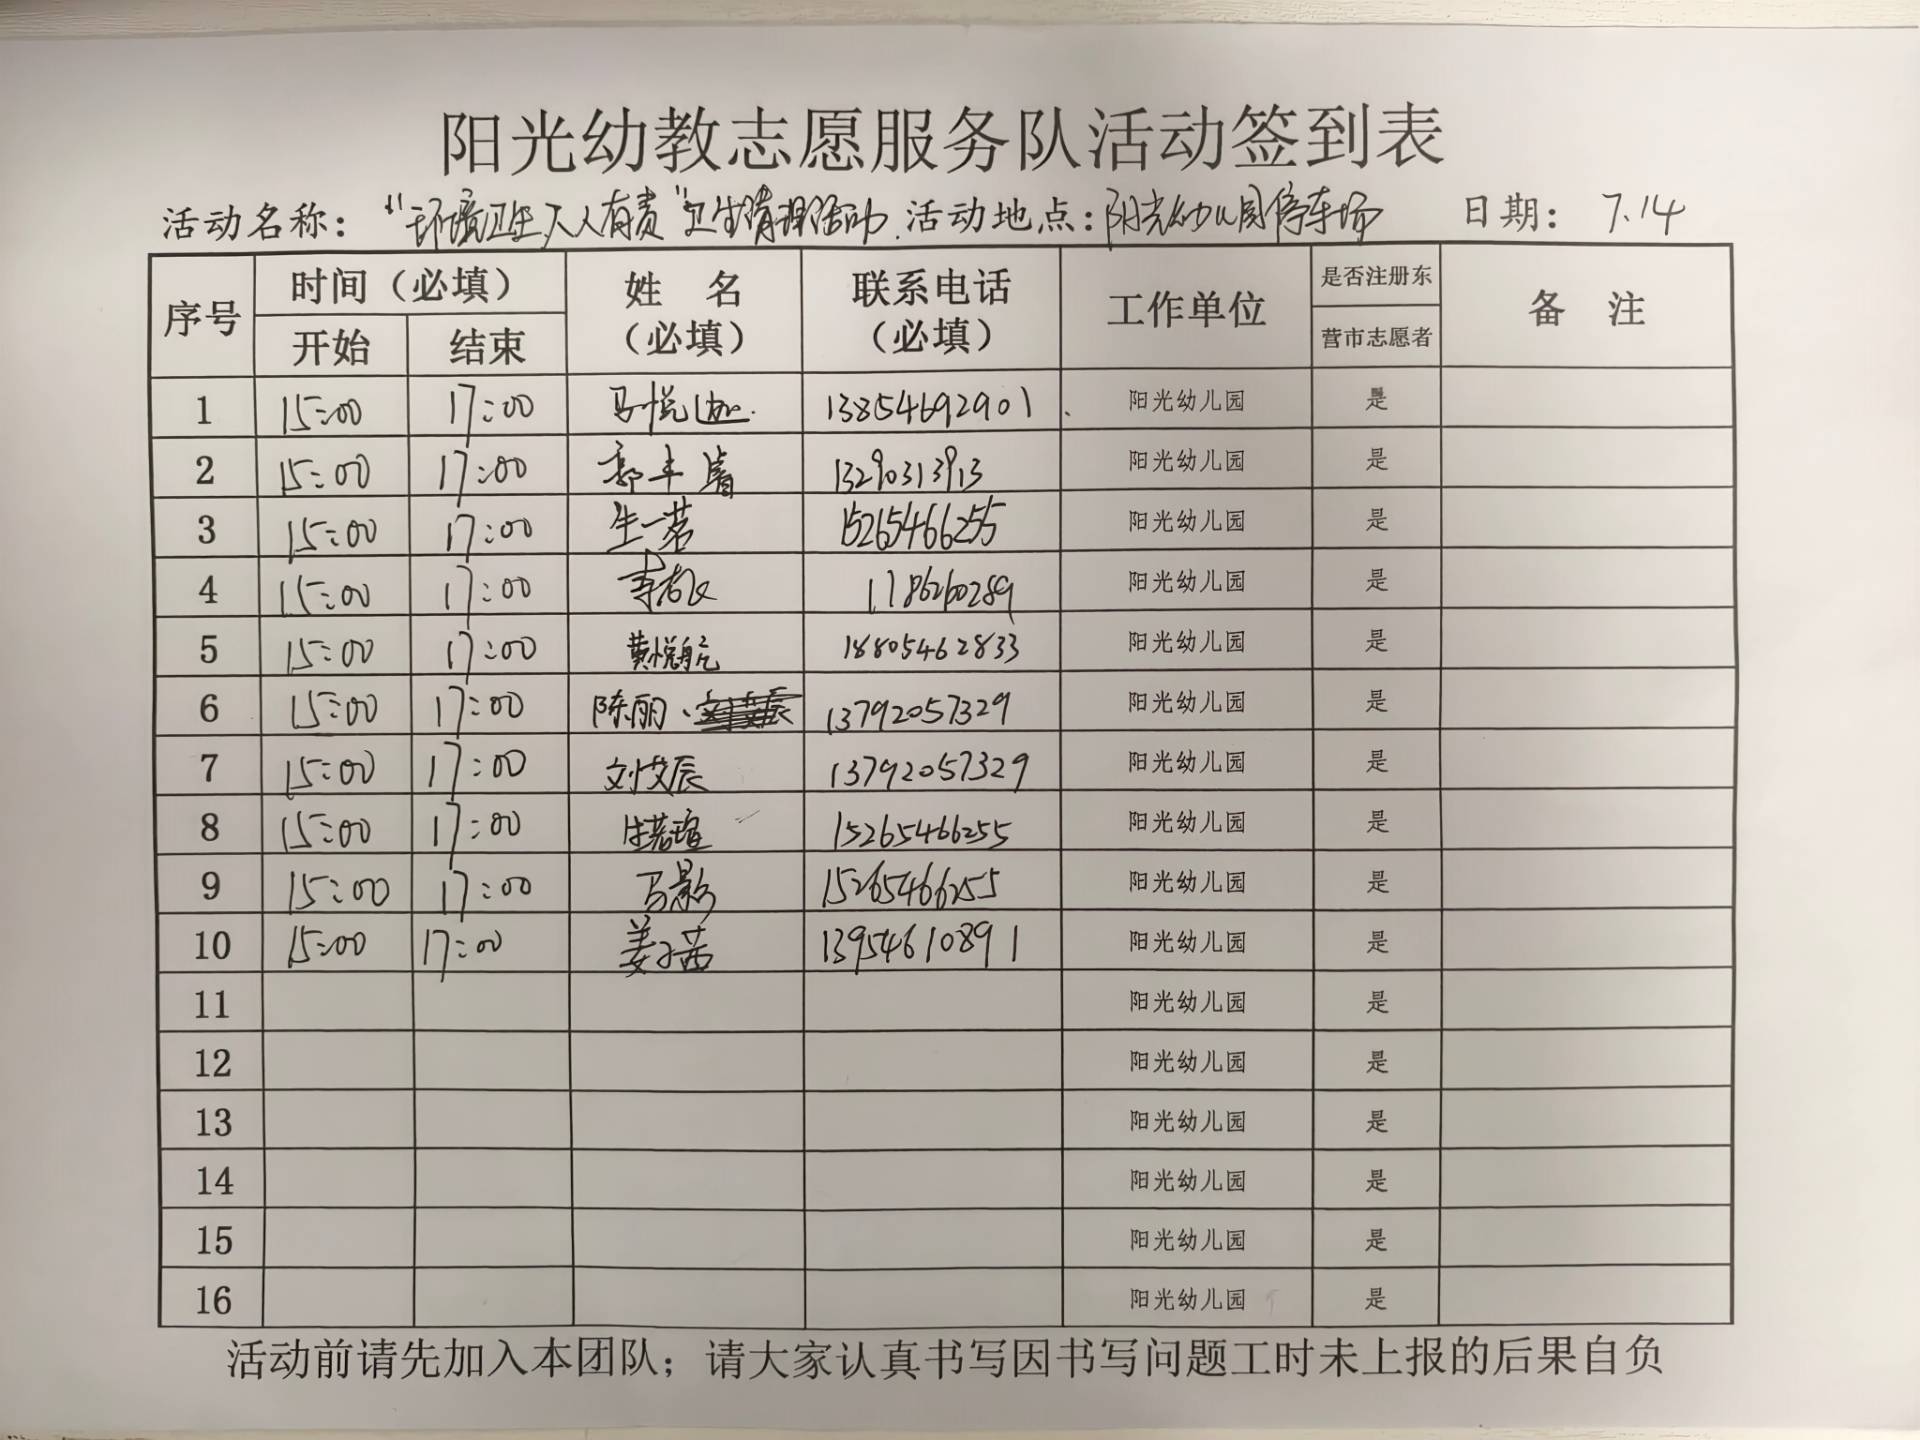 阳光幼教志愿服务队活动签到表
活动名称：“环境卫生人人有责”卫生清理活动. 活动地点：阳光幼儿园停车场 日期：7.14
序号 时间（必填） 姓 名（必填） 联系电话（必填） 工作单位 是否注册东营市志愿者 备 注
开始 结束
1 15:00 17:00 马悦迦. 13854692901 阳光幼儿园 是
2 15:00 17:00 郭丰睿 13290313913 阳光幼儿园 是
3 15:00 17:00 生一茗 15265466255 阳光幼儿园 是
4 15:00 17:00 1786260289 阳光幼儿园 是
5 15:00 17:00 黄悦航 18805462833 阳光幼儿园 是
6 15:00 17:00 陈丽 13792057329 阳光幼儿园 是
7 15:00 17:00 刘艾辰 13792057329 阳光幼儿园 是
8 15:00 17:00 生若瑄 15265466255 阳光幼儿园 是
9 15:00 17:00 万影 15265466255 阳光幼儿园 是
10 15:00 17:00 姜子茜 13954610891 阳光幼儿园 是
11 阳光幼儿园 是
12 阳光幼儿园 是
13 阳光幼儿园 是
14 阳光幼儿园 是
15 阳光幼儿园 是
16 阳光幼儿园 是
活动前请先加入本团队；请大家认真书写因书写问题工时未上报的后果自负